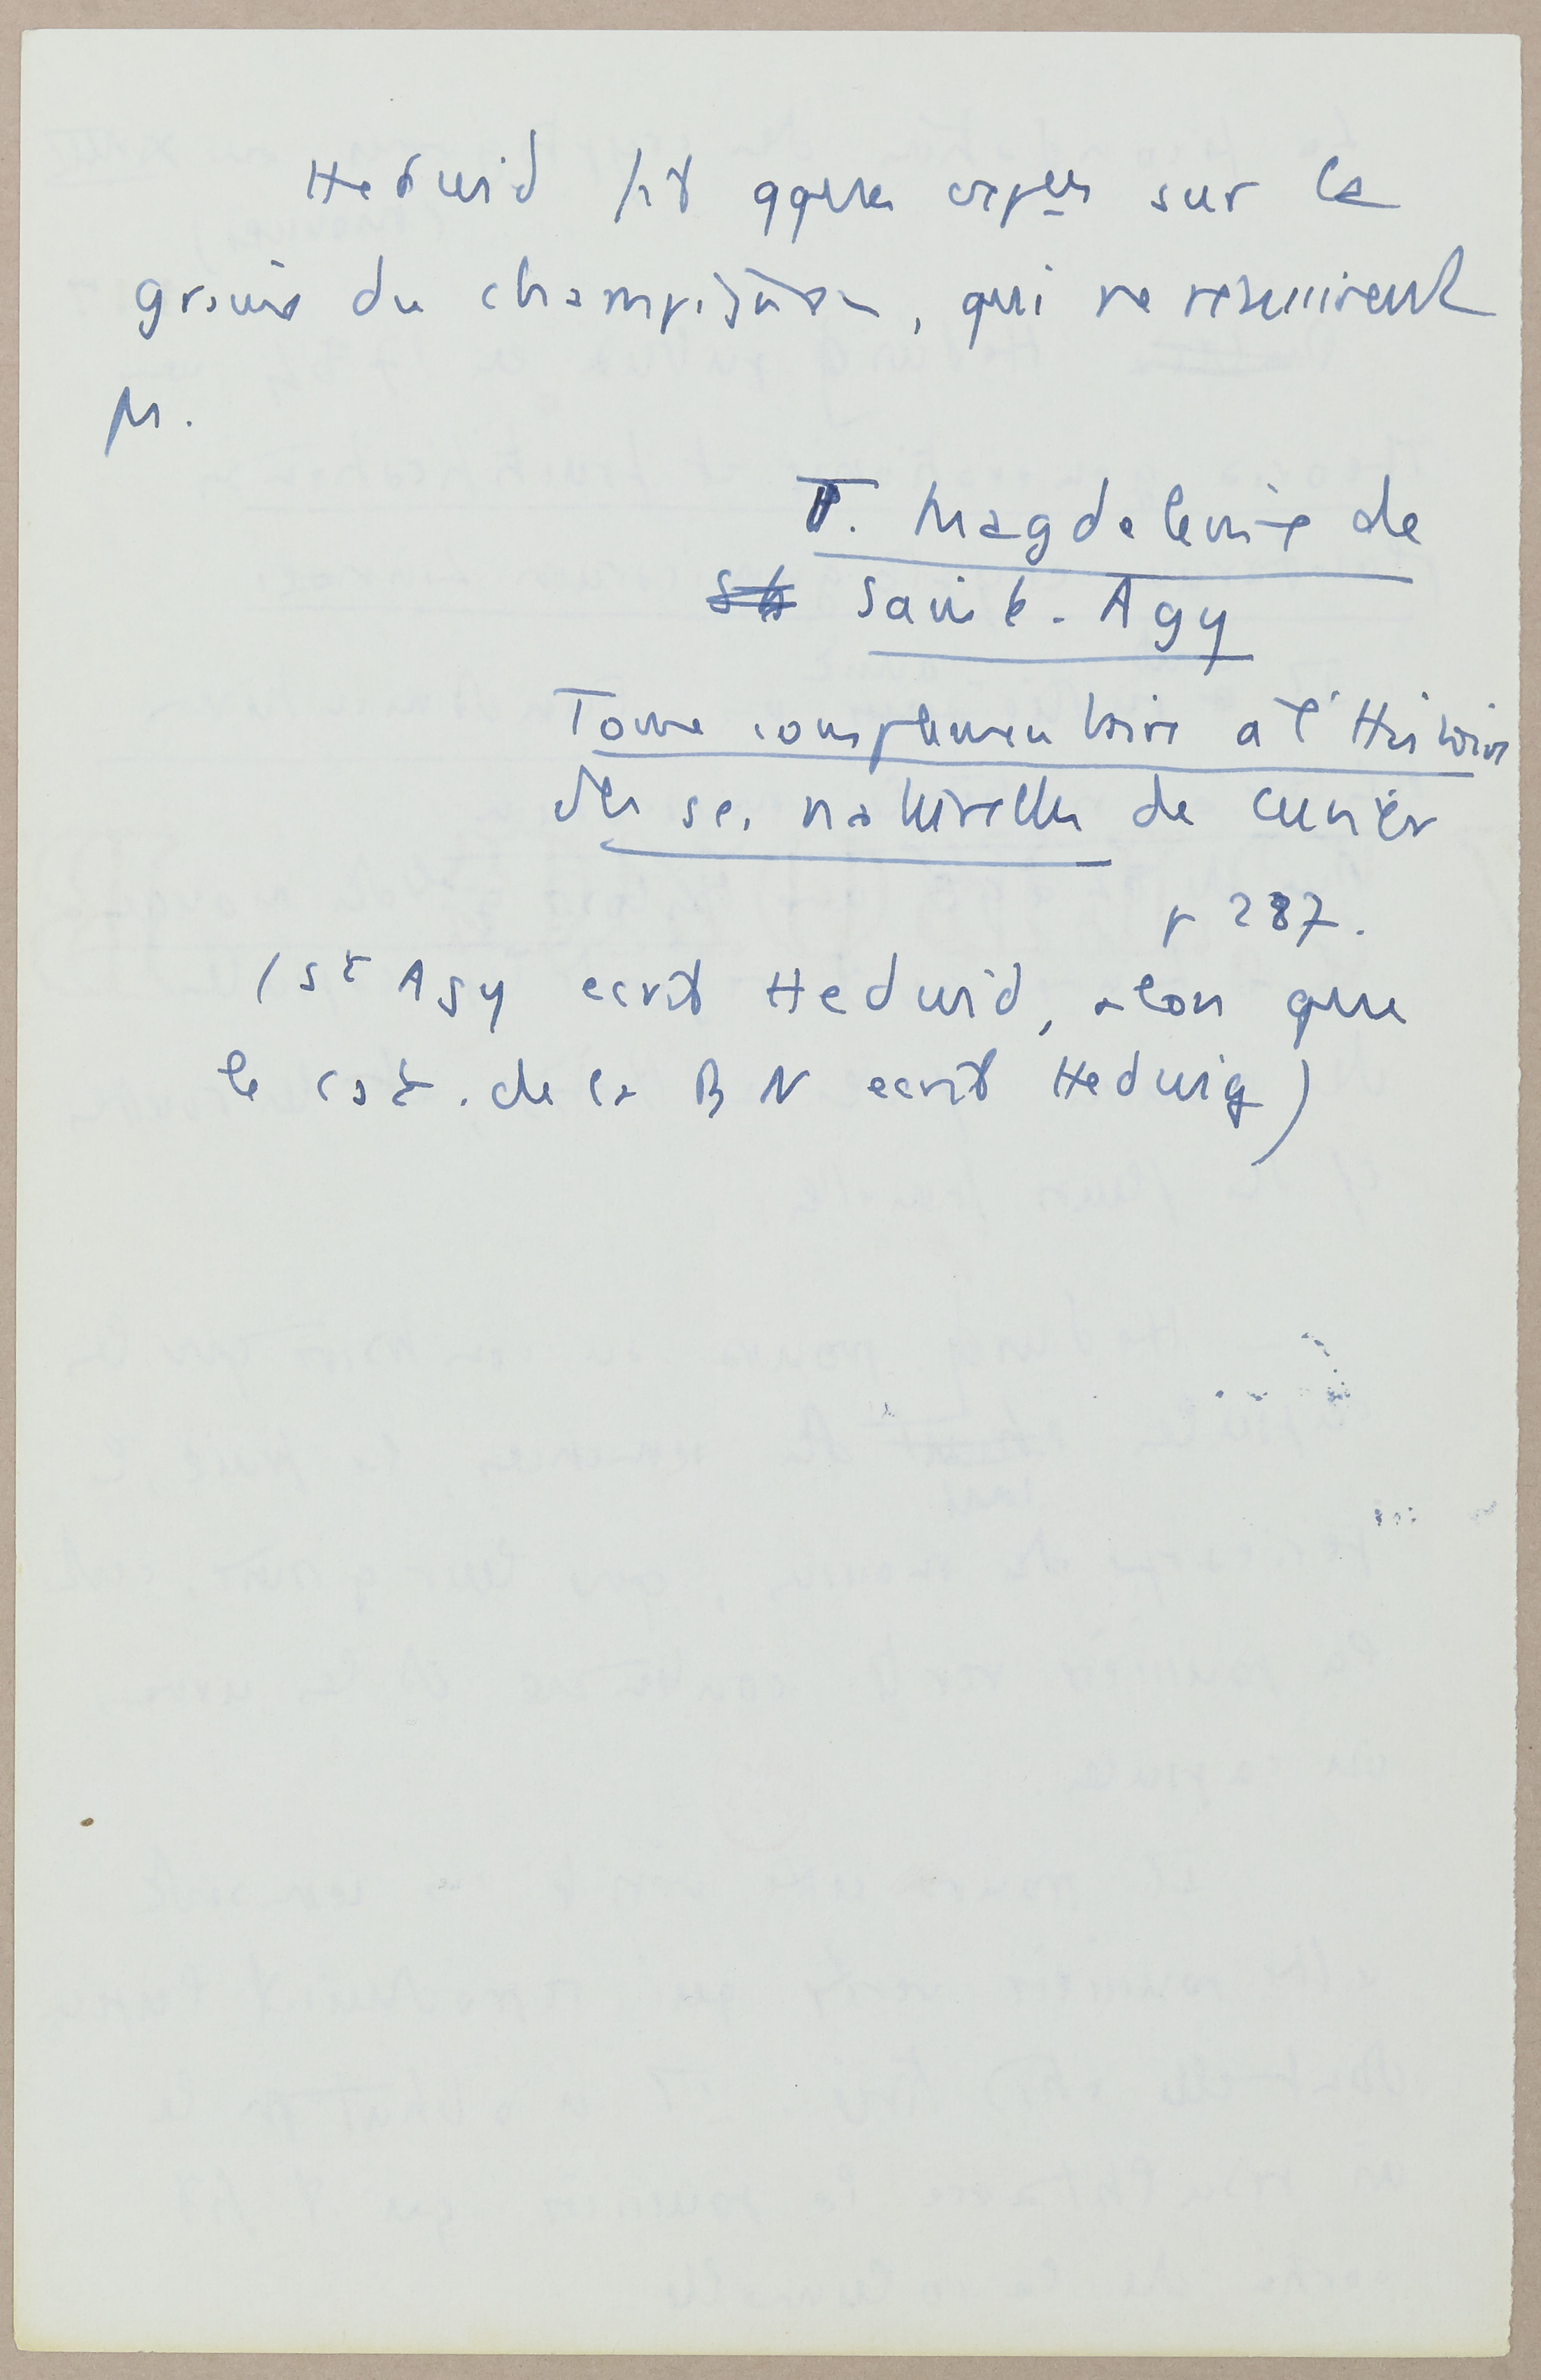 Hedwid fit qques expces sur la
graine du champignon, qui ne reussirent
pas.
T. Magdeleine de
Saint-Agy
Tome complementaire a l'Histoire
des sc. naturelles de Cuvier
p 287.
(St Agy ecrit Hedwid, alors que
le cat. de la BN ecrit Hedwig)